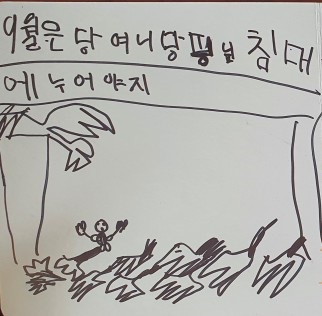 9월은 당여니 침대
에 누어야지